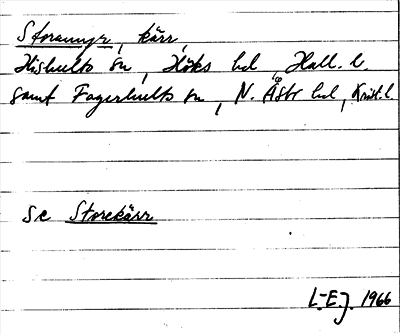 Storemyr, kärr,
Hishults sn, Höks hd, Hall. l.
samt Fagerhults sn, N. Åsbo hd, Krist. l.
Se Storekärr
L-E.J. 1966